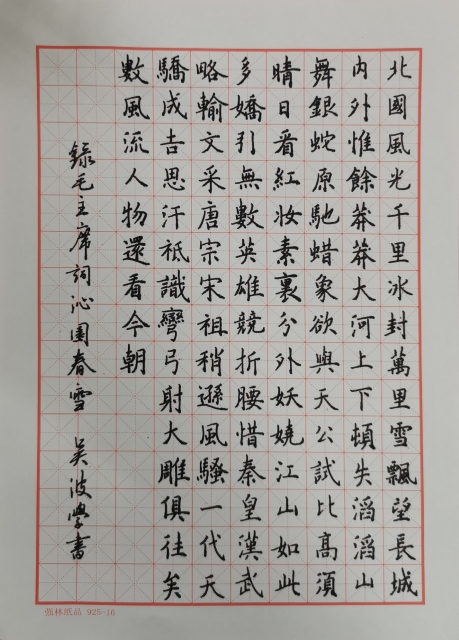 北國風光千里冰封萬里雪飄望長城
内外惟餘莽莽大河上下頓失滔滔山
舞銀蛇原馳蜡象欲與天公試比高須
晴日看紅妆素裹分外妖嬈江山如此
多嬌引無數英雄競折腰惜秦皇漢武
略輸文采唐宗宋祖稍遜風騷一代天
驕成吉思汗祗識彎弓射大雕俱往矣
數風流人物還看今朝
録毛主席詞沁園春雪 吴波學書
925-16